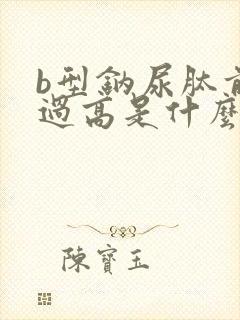 b型鈉尿肽前
過高是什麼
陳寶玉